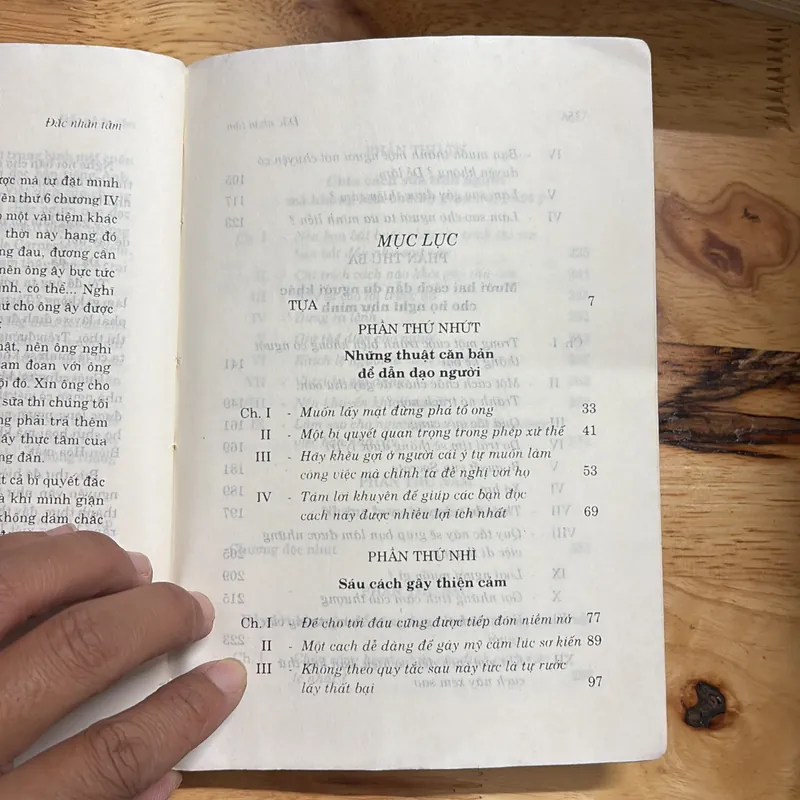 Đắc nhân tâm
ợc mà tự đặt mình
ên thứ 6 chương IV
một vài tiệm khác
thời này hạng đó
ng đau, đương cân
nên ông ấy bực tức
nh, có thể... Nghĩ
ứ cho ông ấy được
nật, nên ông nghi
am đoan với ông
ội đó. Xin ông cho
sửa thì chúng tôi
ng phải trả thêm
ấy thực tâm của
ng đắn.
t cả bí quyết đắc
à khi mình giận
không dám chắc
MỤC LỤC
TỰA 7
PHẦN THỨ NHỨT
Những thuật căn bản
để dẫn dạo người
Ch. I - Muốn lấy mật đừng phá tổ ong 33
II - Một bị quyết quan trọng trong phép xử thế 41
III - Hãy khêu gợi ở người cái ý tự muốn làm
công việc mà chính ta đề nghị với họ 53
IV - Tám lời khuyên để giúp các bạn đọc
cách này được nhiều lợi ích nhất 69
PHẦN THỨ NHÌ
Sáu cách gây thiện cảm
Ch. I - Để cho tới đâu cũng được tiếp đón niềm nở 77
II - Một cách dễ dàng để gây mỹ cảm lúc sơ kiến 89
III - Không theo quy tắc sau này tức là tự rước
lấy thất bại 97